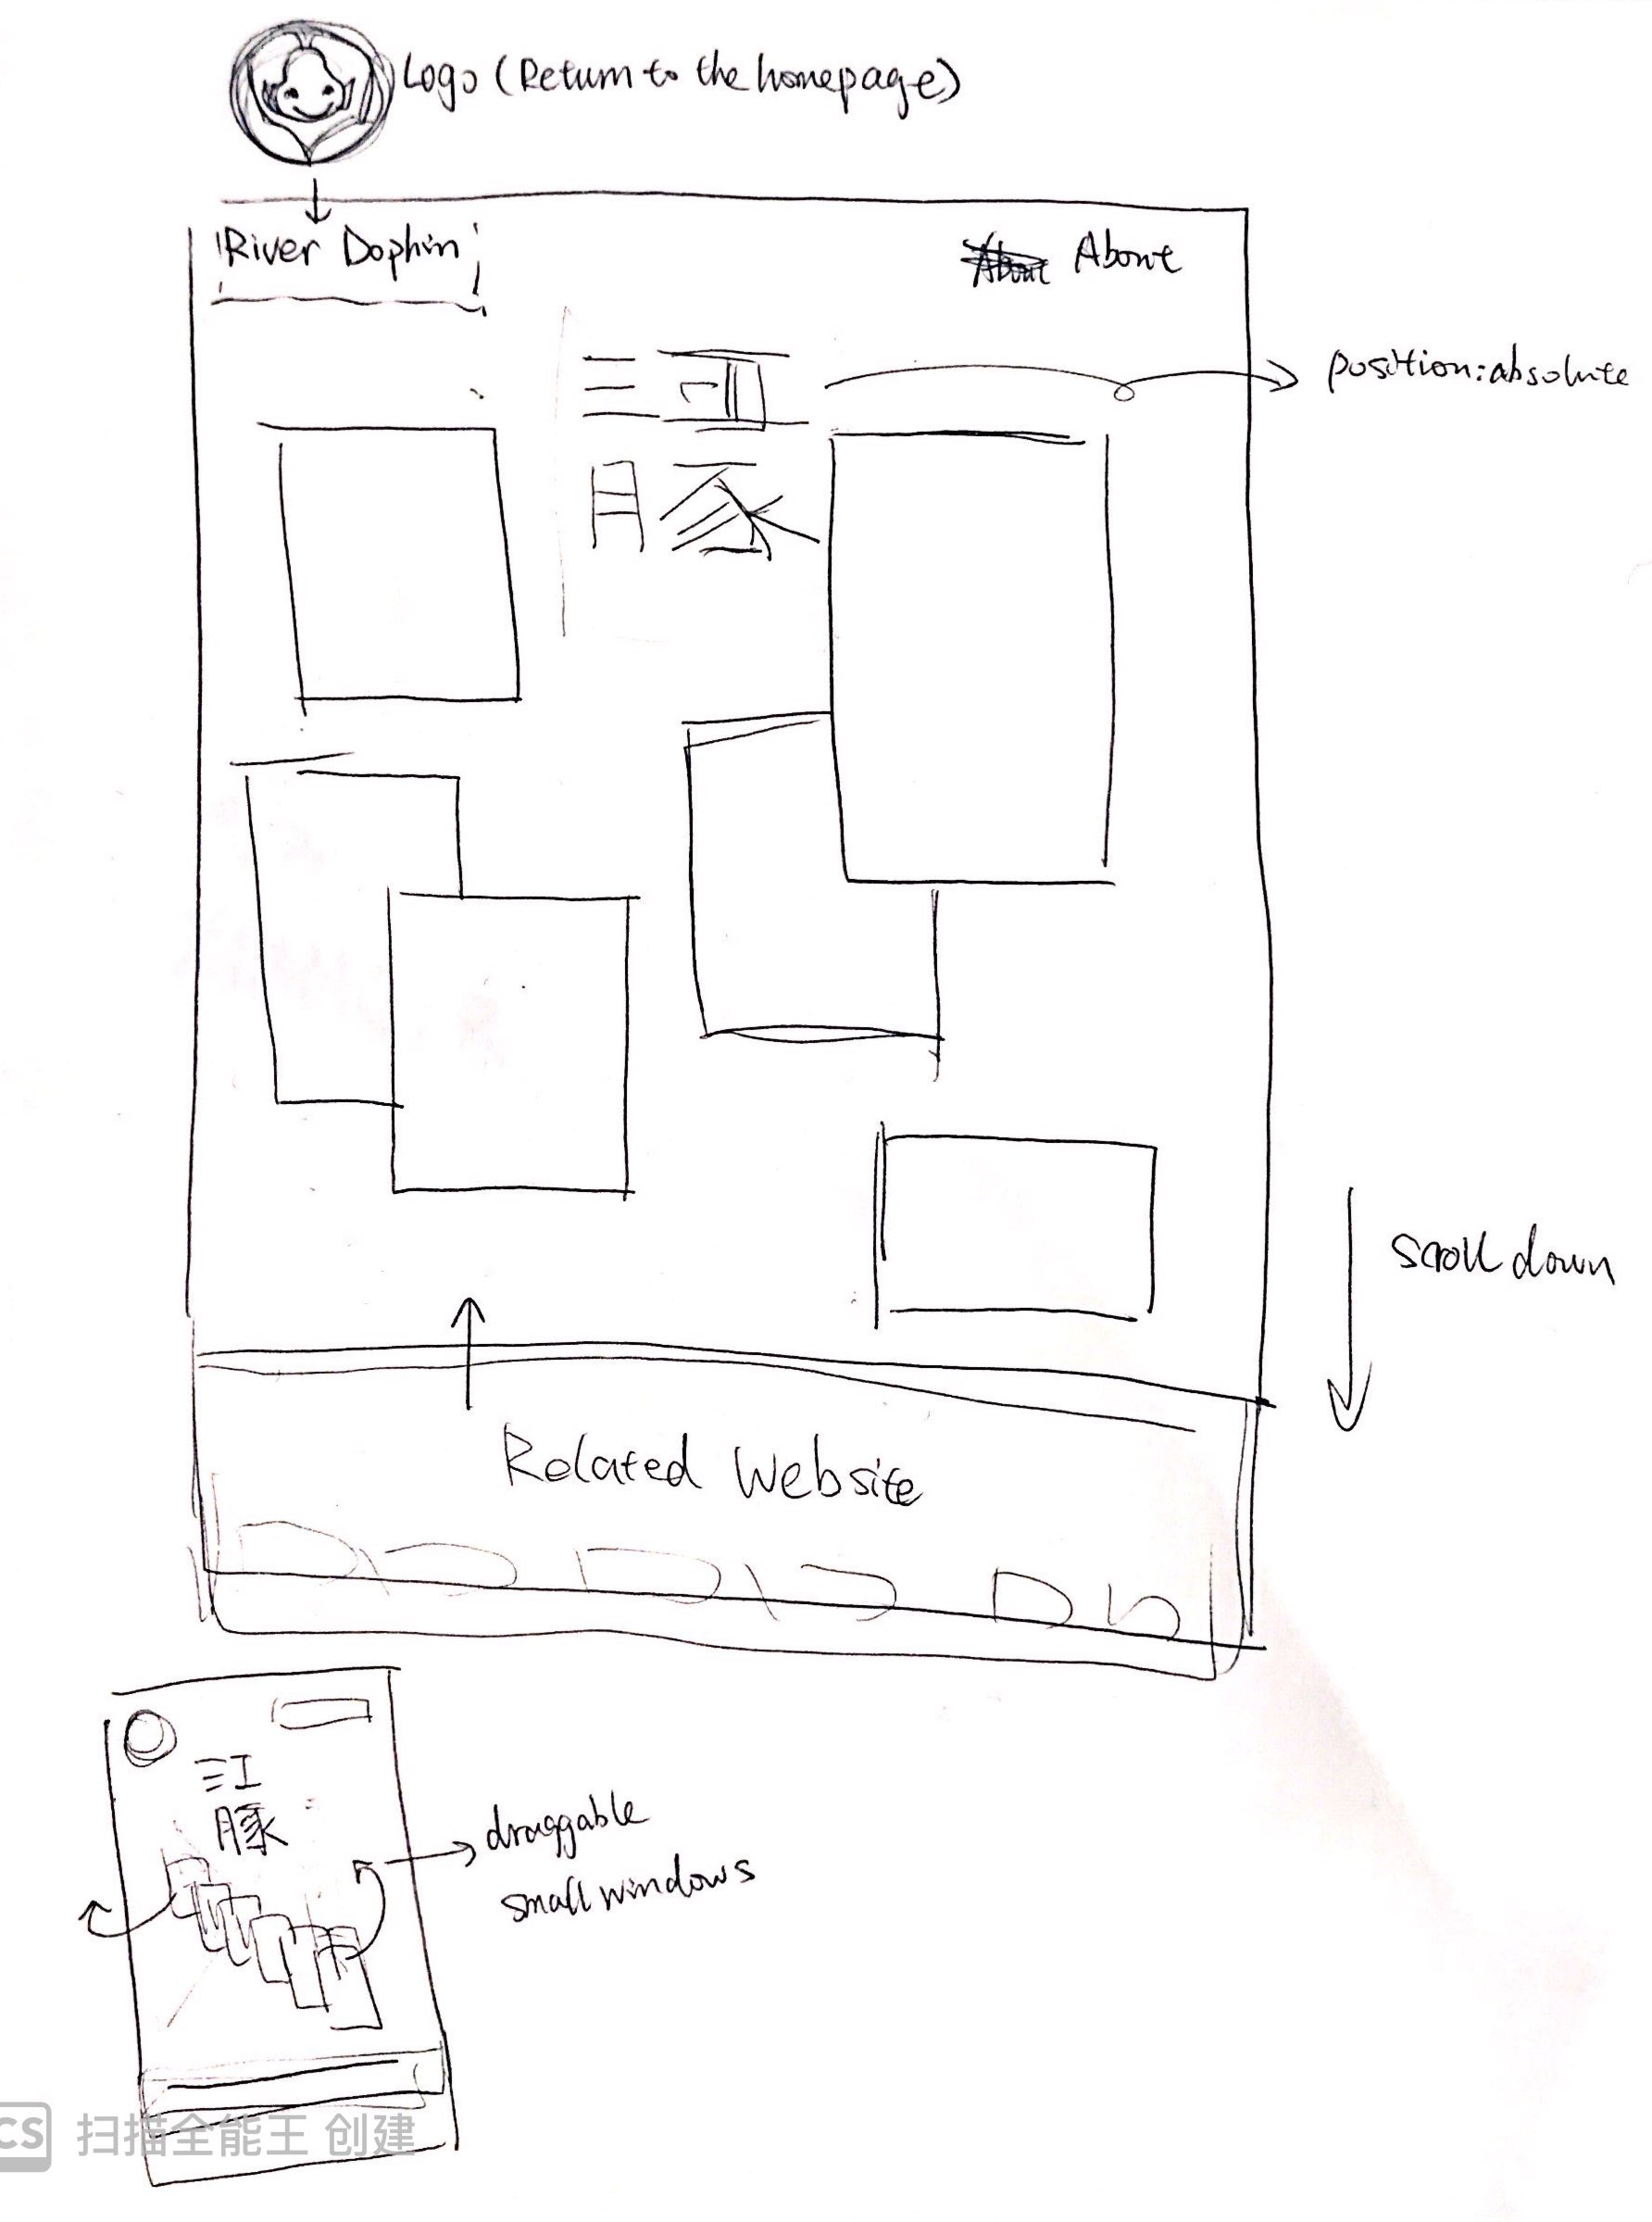 Logo (Return to the homepage)
River Dophin
About About
三江
position:absolute
豚
scroll down
Related Website
三江
豚
draggable
small windows
CS 扫描全能王 创建